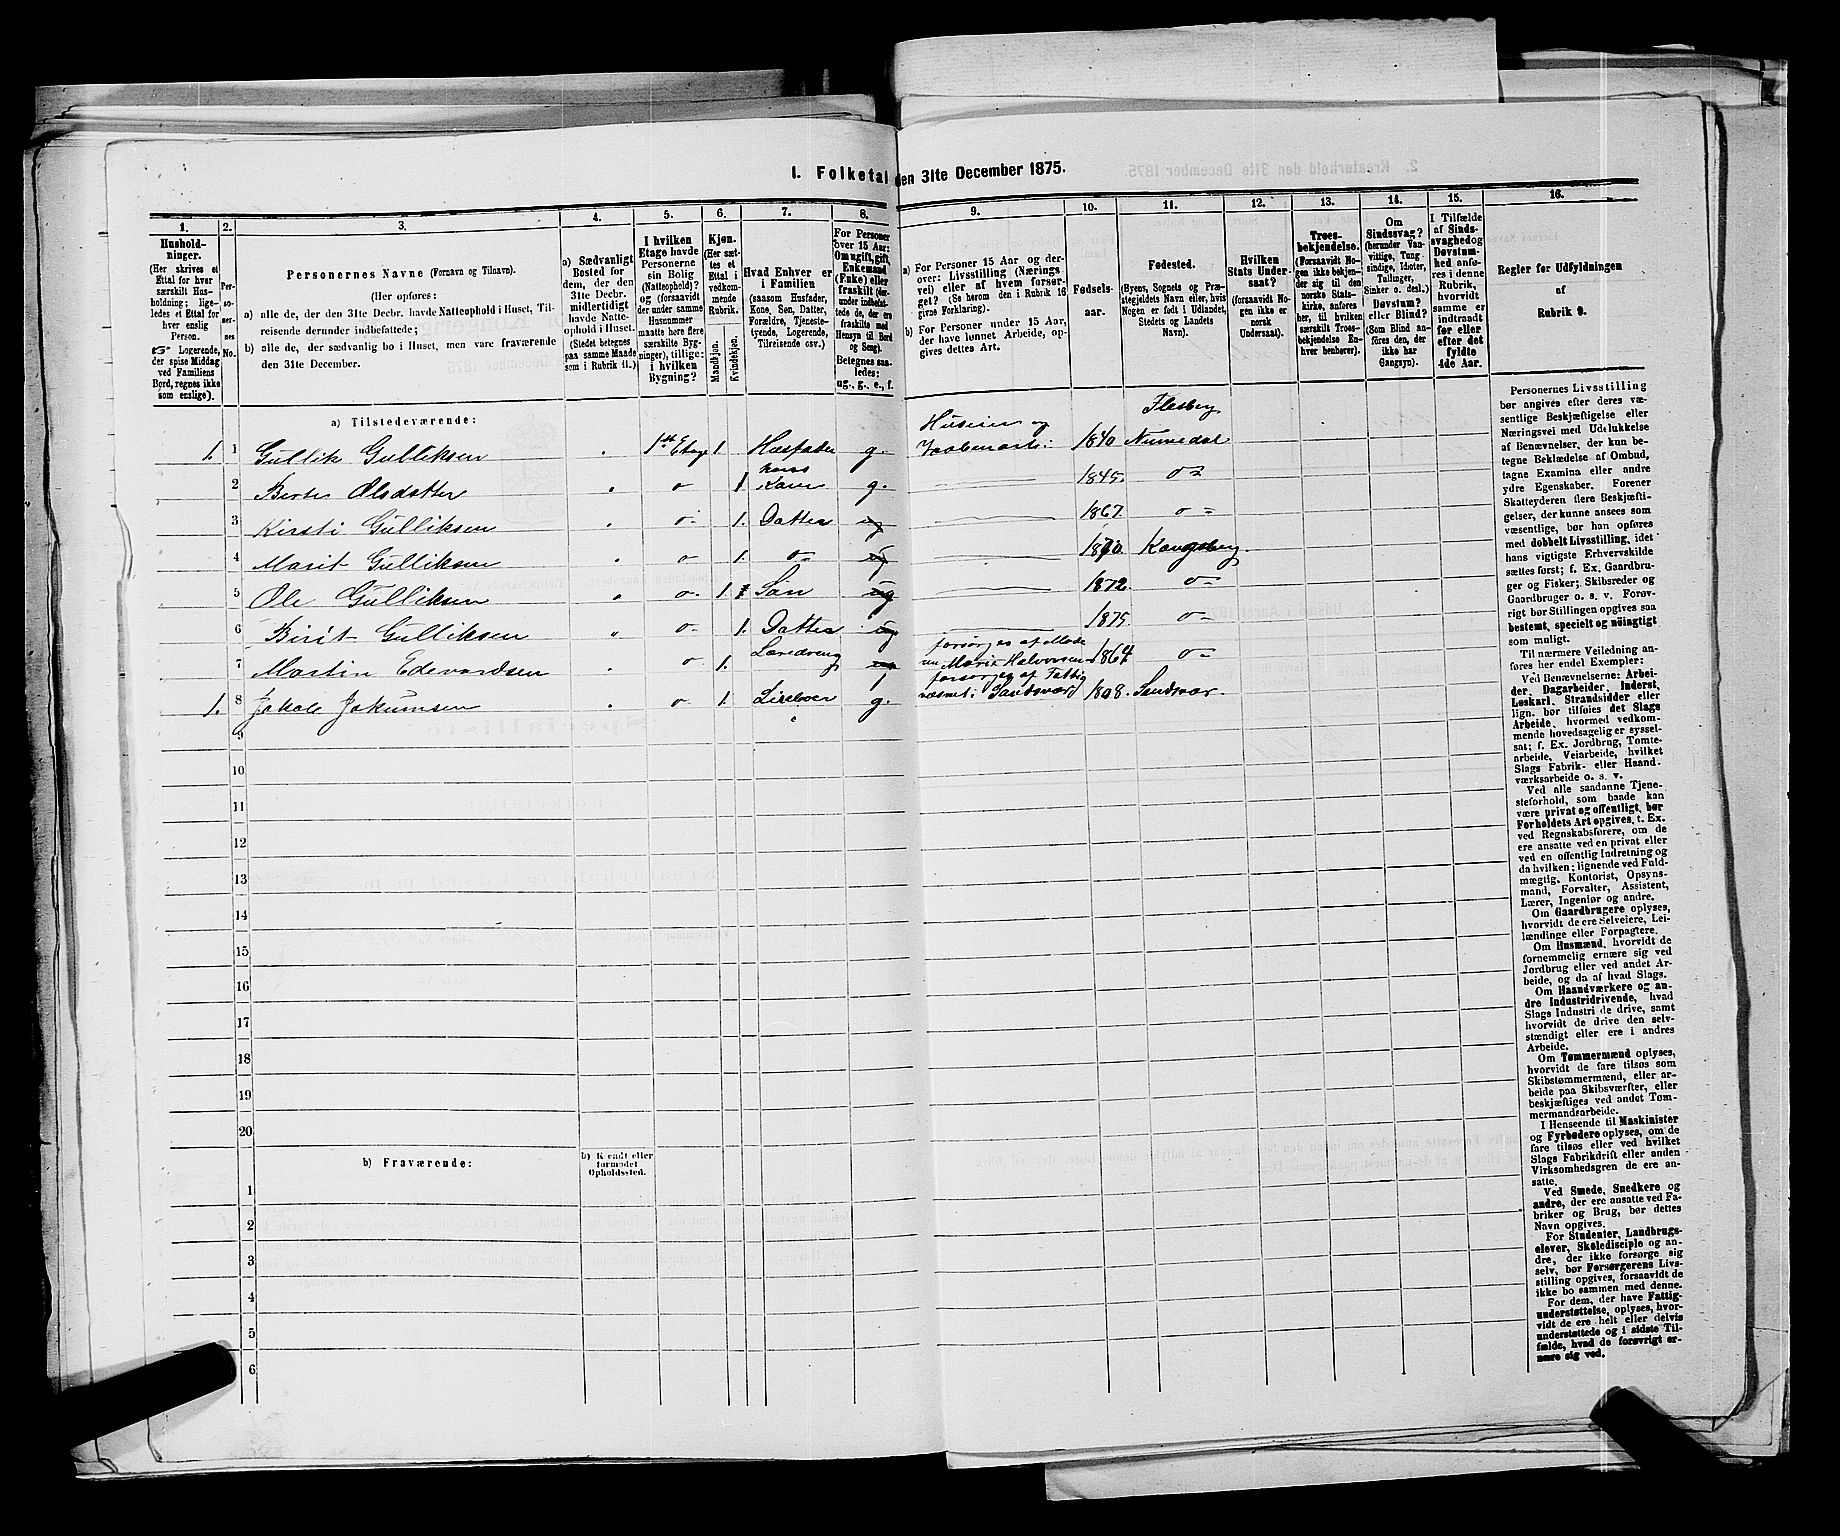 1. Folketal den 31te December 1875.
1. 2. 3. 4. 5. 6. 7. 8. 9. 10. 11. 12. 13. 14. 15. 16.
Hushold-
ninger.
(Her skrives et
Ettal for hver
særskilt Hus-
holdning; lige-
ledes et Ettal for
hver enslig
Person.
☞ Logerende,
der spise Middag
ved Familiens
Bord, regnes ikke
som enslige).
Per-
so-
ner-
nes
No.
Personernes Navne (Fornavn og Tilnavn).
(Her opføres:
a) alle de, der den 31te Decbr. havde Natteophold i Huset, Til-
reisende derunder indbefattede;
b) alle de, der sædvanlig bo i Huset, men vare fraværende
den 31te December.
a) Sædvanligt
Bosted for
dem, der den
31te Decbr.
midlertidigt
havde Natte-
ophold i Huset.
(Stedet betegnes
paa samme Maade
som i Rubrik 11.)
I hvilken
Etage havde
Personerne
sin Bolig
(Natteophold)?
og (forsaavidt
der under samme
Husnummer
maatte høre flere
særskilte Byg-
ninger), tillige:
i hvilken
Bygning?
Kjøn.
(Her sæt-
tes et
Ettal i
vedkom-
mende
Rubrik.
Mandkjøn.
Kvindekjøn.
Hvad Enhver er
i Familien
(saasom Husfader,
Kone, Søn, Datter,
Forældre, Tjeneste-
tyende, Logerende,
Tilreisende osv.)
For Personer
over 15 Aar:
Om ugift, gift,
Enkemand
(Enke) eller
fraskilt (der-
under indbefat-
tede de, der ere
fraskilte med
Hensyn til Bord
og Seng).
Betegnes saa-
ledes:
ug., g., e., f.
a) For Personer 15 Aar og der-
over: Livsstilling (Nærings
vei) eller af hvem forsør-
get? (Se herom den i Rubrik 16
givne Forklaring).
b) For Personer under 15 Aar,
der have lønnet Arbeide, op-
gives dettes Art.
Fødsels-
aar.
Fødested.
(Byens, Sognets og Præ-
stegjeldets Navn eller, hvis
Nogen er født i Udlandet,
Stedets og Landets
Navn).
Hvilken
Stats Under-
saat?
(forsaavidt No-
gen ikke er
norsk
Undersaat).
Troes-
bekjendelse.
(Forsaavidt No-
gen ikke bekjen-
der sig til den
norske Stats-
kirke, anføres
her, til hvilken
særskilt Troes-
bekjendelse En-
hver henhører).
Om
Sindssvag?
(herunder Van-
vittige, Tung-
sindige, Idioter,
Tullinger,
Sinker o. desl.)
Døvstum?
eller Blind?
(Som Blind an-
føres den, der
ikke har
Gangsyn).
I Tilfælde
af Sinds-
svaghed og
Døvstum-
hed anfø-
res i denne
Rubrik,
hvorvidt
samme er
indtraadt
før eller
efter det
fyldte
4de Aar.
Regler for Udfyldningen
af
Rubrik 9.
a) Tilstedeværende:
1. 1 Gullik Gulliksen 1ste Etage 1. Husfader g. Huseier og 1840 Flesberg Numedal
2 Berte Olsdatter o 1 hans Kone g. 1845. o
3 Kirsti Gulliksen o 1. Datter ug 1867. o
4 Marit Gulliksen o 1. o ug 1870. Kongsberg.
5 Ole Gulliksen o 1. Søn ug 1872. o
6 Birit Gulliksen o 1. Datter ug 1875. o
7 Martin Edevardsen o 1. forsørges af Mode ren Marie Halvorsen 1864 o
1. 8 Jakob Jakumsen o 1. g. forsørges af Fattig væsnet i Sandsvær 1808. Sandsvær.
9
10
11
12
13
14
15
16
17
18
19
20
b) Fraværende:
b) Kjendt eller
formodet
Opholdssted.
1
2
3
4
5
6
Personernes Livsstilling
bør angives efter deres væ-
sentlige Beskjæftigelse eller
Næringsvei med Udelukkelse
af Benævnelser, der kun be-
tegne Beklædelse af Ombud,
tagne Examina eller andre
ydre Egenskaber. Forener
Skatteyderen flere Beskjæfti-
gelser, der kunne ansees som
væsentlige, bør han opføres
med dobbelt Livsstilling, idet
hans vigtigste Erhvervskilde
sættes først; f. Ex. Gaardbru-
ger og Fisker; Skibsreder og
Gaardbruger o. s. v. Forøv-
rigt bør Stillingen opgives saa
bestemt, specielt og nøiagtigt
som muligt.
Til nærmere Veiledning an-
føres her endel Exempler:
Ved Benævnelserne: Arbei-
der, Dagarbeider, Inderst,
Løskarl, Strandsidder eller
lign. bør tilføies det Slags
Arbeide, hvormed vedkom-
mende hovedsagelig er syssel-
sat; f. Ex. Jordbrug, Tomte-
arbeide, Veiarbeide, hvilket
Slags Fabrik- eller Haand-
værksarbeide o. s. v.
Ved alle saadanne Tjene-
steforhold, som baade kan
være privat og offentligt, bør
Forholdets Art opgives, t. Ex.
ved Regnskabsførere, om de
ere ansatte ved en privat eller
ved en offentlig Indretning og
da hvilken; lignende ved Fuld-
mægtig, Kontorist, Opsyns-
mand, Forvalter, Assistent,
Lærer, Ingeniør og andre.
Om Gaardbrugere oplyses,
hvorvidt de ere Selveiere, Lei-
lændinge eller Forpagtere.
Om Husmænd, hvorvidt de
fornemmelig ernære sig ved
Jordbrug eller ved andet Ar-
beide, og da af hvad Slags.
Om Haandværkere og an-
dre Industridrivende, hvad
Slags Industri de drive, samt
hvorvidt de drive den selv-
stændigt eller ere i andres
Arbeide.
Om Tømmermænd oplyses,
hvorvidt de fare tilsøs som
Skibstømmermænd, eller ar-
beide paa Skibsværfter, eller
beskjæftiges ved andet Tøm-
mermandsarbeide.
I Henseende til Maskinister
og Fyrbødere oplyses, om de
fare tilsøs eller ved hvilket
Slags Fabrikdrift eller anden
Virksomhedsgren de ere an-
satte.
Ved Smede, Snedkere og
andre, der ere ansatte ved Fa-
briker og Brug, bør dettes
Navn opgives.
For Studenter, Landbrugs-
elever, Skoledisciple og an-
dre, der ikke forsørge sig
selv, bør Forsørgerens Livs-
stilling opgives, forsaavidt de
ikke bo sammen med denne.
For dem, der have Fattig-
understøttelse, oplyses, hvor-
vidt de ere helt eller delvis
understøttede og i sidste Til-
fælde, hvad de forøvrigt er-
nære sig ved.